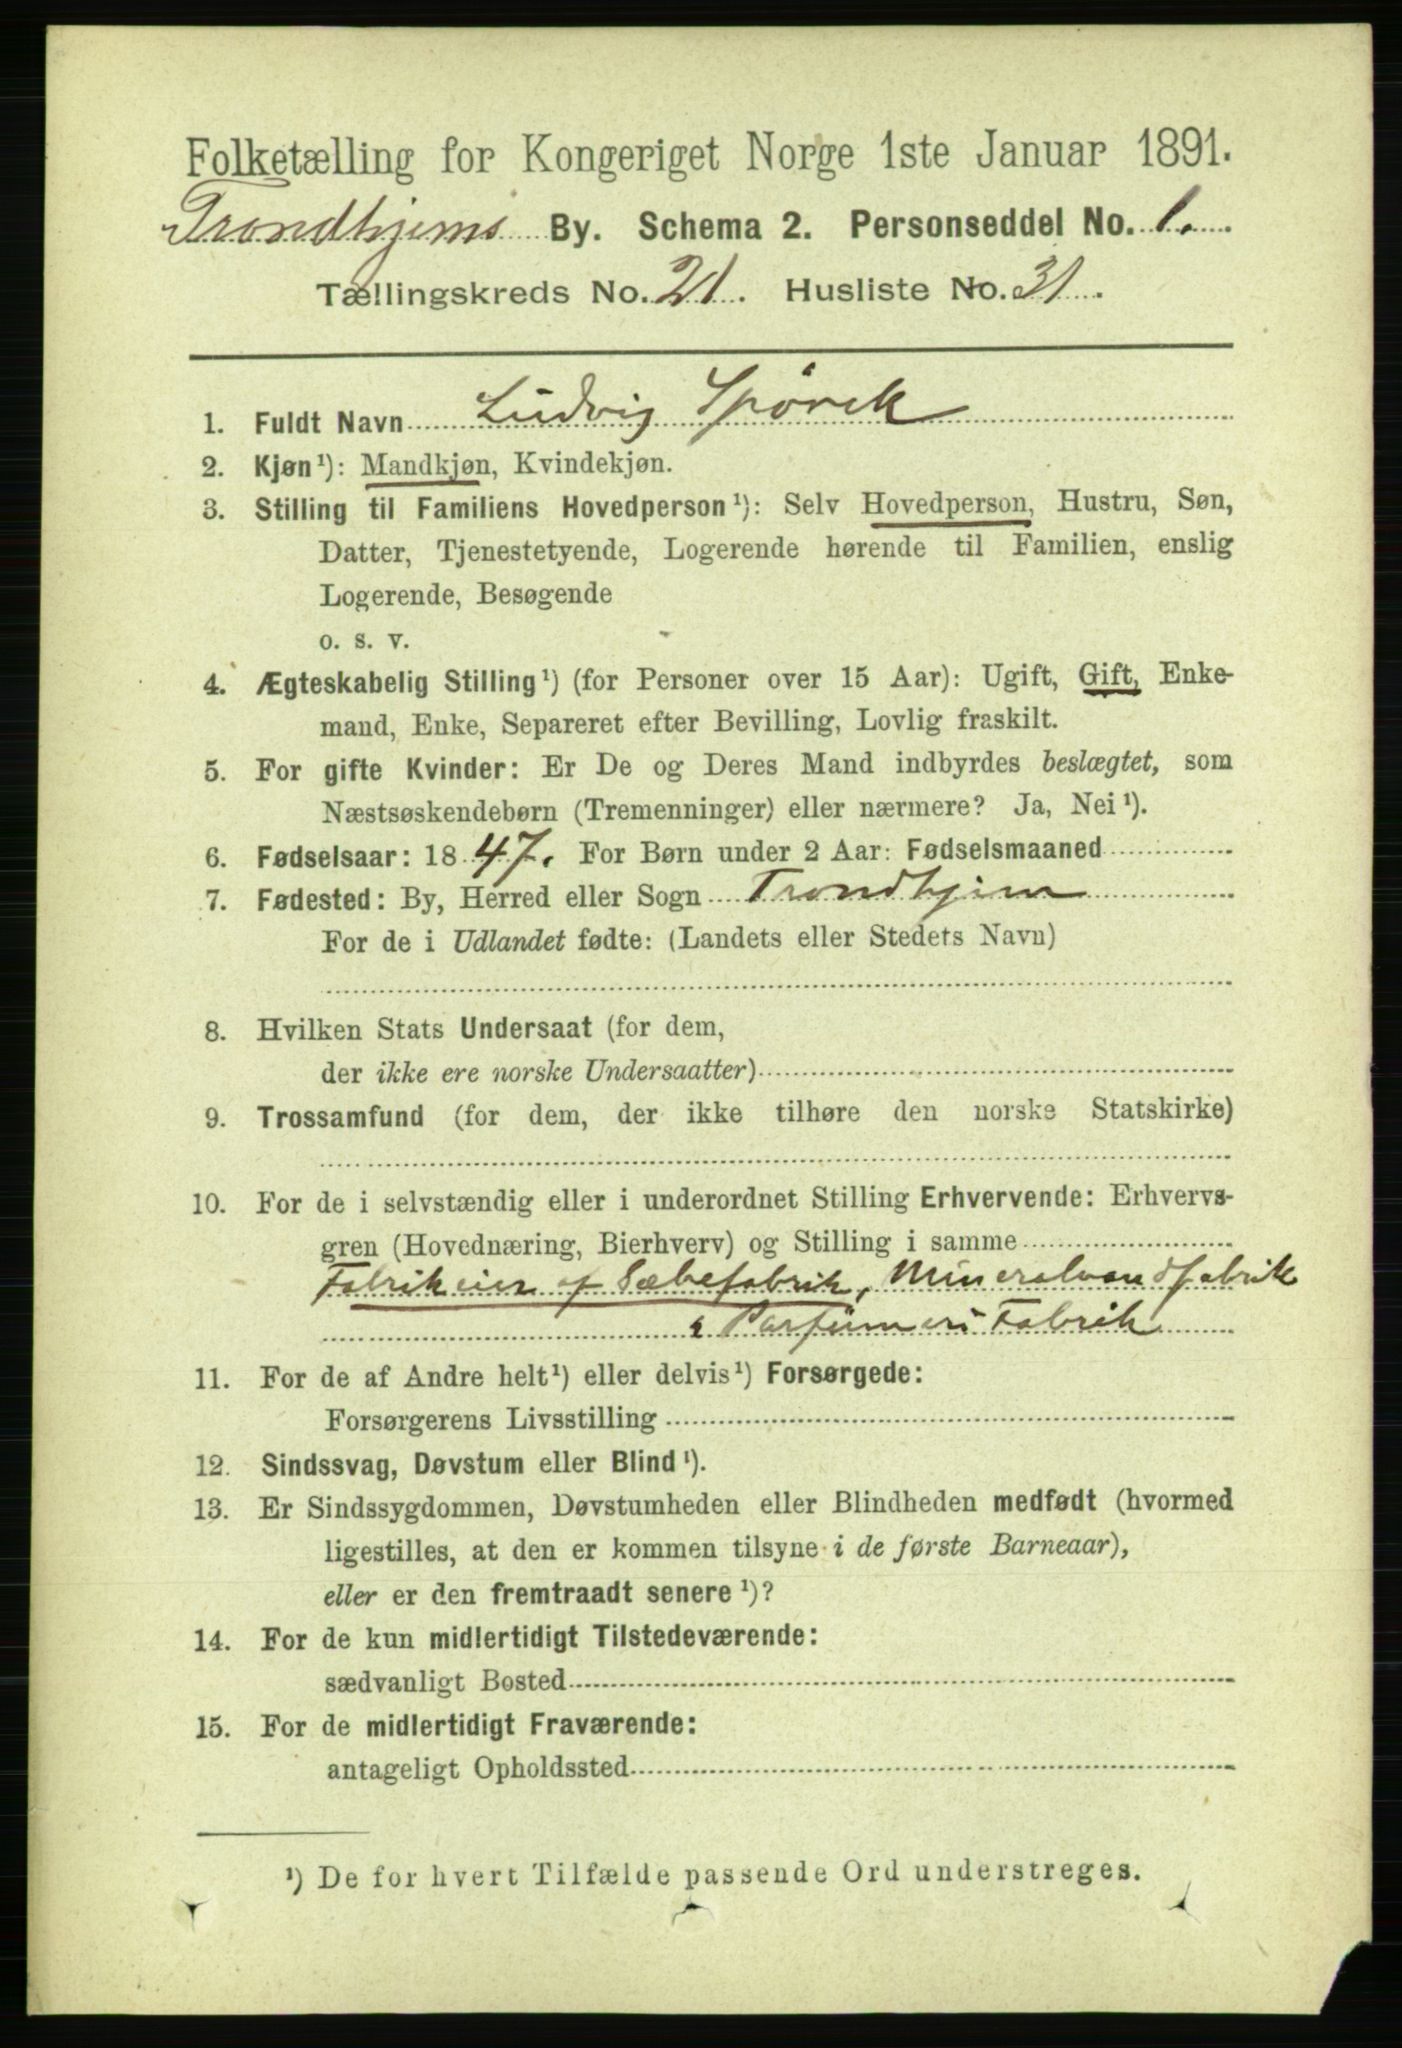 Folketælling for Kongeriget Norge 1ste Januar 1891.
Trondhjems By. Schema 2. Personseddel No. 1.
Tællingskreds No. 21. Husliste No. 31.
1. Fuldt Navn Ludvig Spörck
2. Kjøn¹): Mandkjøn, Kvindekjøn.
3. Stilling til Familiens Hovedperson¹): Selv Hovedperson, Hustru, Søn,
Datter, Tjenestetyende, Logerende hørende til Familien, enslig
Logerende, Besøgende
o. s. v.
4. Ægteskabelig Stilling¹) (for Personer over 15 Aar): Ugift, Gift, Enke-
mand, Enke, Separeret efter Bevilling, Lovlig fraskilt.
5. For gifte Kvinder: Er De og Deres Mand indbyrdes beslægtet, som
Næstsøskendebørn (Tremenninger) eller nærmere? Ja, Nei¹).
6. Fødselsaar: 1847. For Børn under 2 Aar: Fødselsmaaned
7. Fødested: By, Herred eller Sogn Trondhjem
For de i Udlandet fødte: (Landets eller Stedets Navn)
8. Hvilken Stats Undersaat (for dem,
der ikke ere norske Undersaatter)
9. Trossamfund (for dem, der ikke tilhøre den norske Statskirke)
10. For de i selvstændig eller i underordnet Stilling Erhvervende: Erhvervs-
gren (Hovednæring, Bierhverv) og Stilling i samme
Fabrikeier af Sæbefabrik, Mineralvandfabrik
& Parfümeri Fabrik
11. For de af Andre helt¹) eller delvis¹) Forsørgede:
Forsørgerens Livsstilling
12. Sindssvag, Døvstum eller Blind¹).
13. Er Sindssygdommen, Døvstumheden eller Blindheden medfødt (hvormed
ligestilles, at den er kommen tilsyne i de første Barneaar),
eller er den fremtraadt senere¹)?
14. For de kun midlertidigt Tilstedeværende:
sædvanligt Bosted
15. For de midlertidigt Fraværende:
antageligt Opholdssted
¹) De for hvert Tilfælde passende Ord understreges.